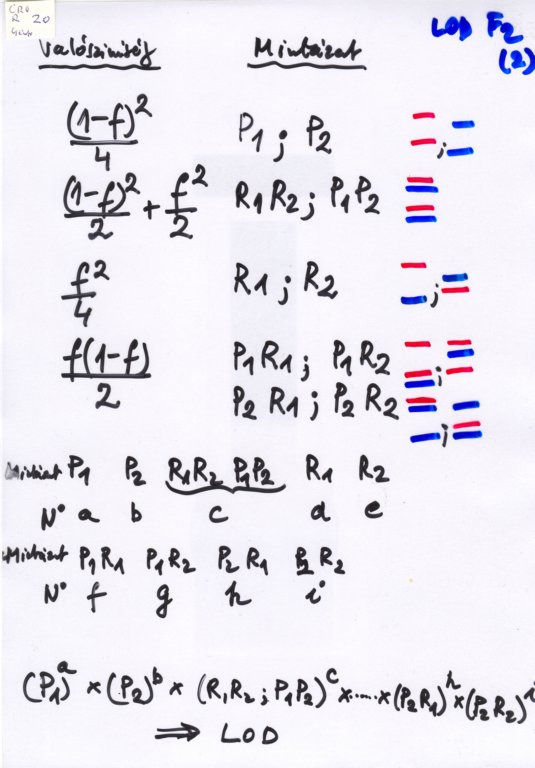 CRO
R 20
LOD F2
(2)
Valószinűség Mintázat
(1-f)²/4 P1 ; P2
(1-f)²/2 + f²/2 R1R2 ; P1P2
f²/4 R1 ; R2
f(1-f)/2 P1R1 ; P1R2
P2R1 ; P2R2
Mintázat P1 P2 R1R2 P1P2 R1 R2
N° a b c d e
Mintázat P1R1 P1R2 P2R1 P2R2
N° f g h i
(P1)^a × (P2)^b × (R1R2 ; P1P2)^c × ..... × (P2R1)^h × (P2R2)^i
⇒ LOD